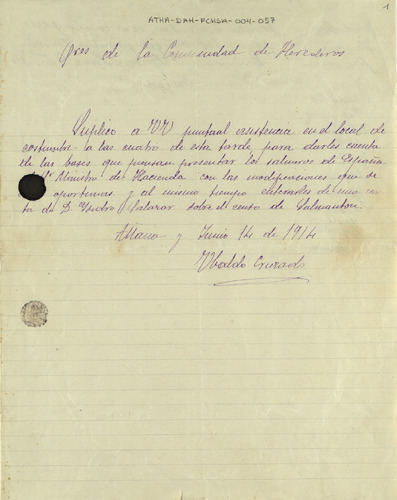 ATHA-DAH-FCHSA-004-057
1
Gres de la Comunidad de Herederos
Suplico a VV puntual asistencia en el local de
costumbre a las cuatro de esta tarde para darles cuenta
de las bases que piensan presentar los salineros de España
Ministro de Hacienda con las modificaciones que se
oportunas y al mismo tiempo enterarles de una car
ta de D. Ysidro Salazar sobre el censo de Salmanton.
Añana y Junio 14 de 1914
Ubaldo Cruzado